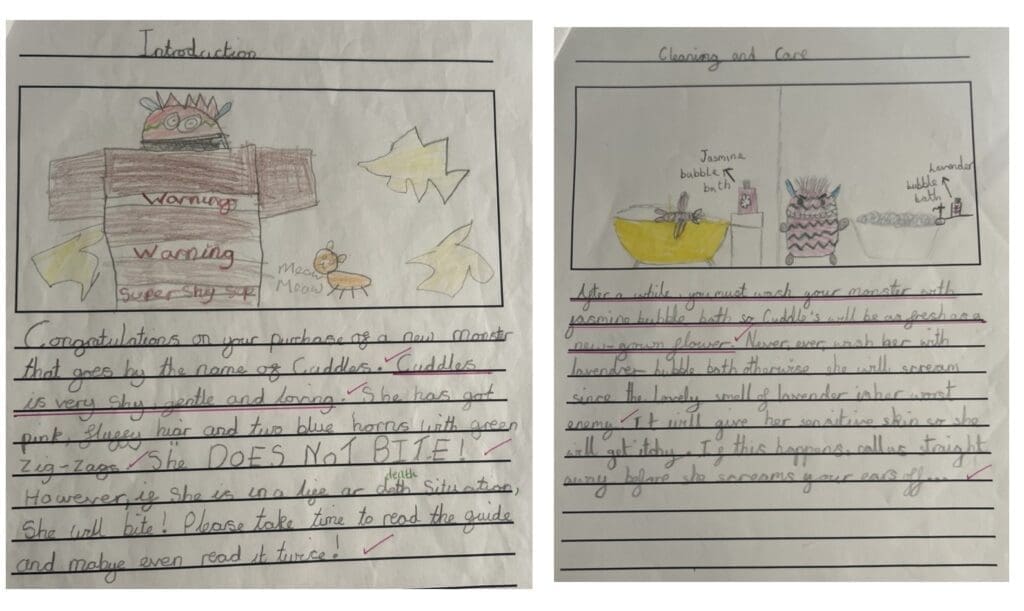 Introduction
Warning
Warning
Super Shy
Meow
Meow
Congratulations on your purchase of a new monster
that goes by the name of Cuddles. Cuddles
is very shy, gentle and loving. She has got
pink, fluffy hiar and two blue horns with green
Zig-Zags. She DOES NOT BITE!
death
However, if she is in a life or deth situation,
She will bite! Please take time to read the guide
and mabye even read it twice!
Cleaning and Care
Jasmine
bubble
bath
Lavender
bubble
bath
After a while you must wash your monster with
jasmine bubble bath so Cuddle's will be as fresh as a
new-grown flower. Never, ever, wash her with
lavendrer bubble bath otherwise she will scream
since the lovely smell of lavender is her worst
enemy. It will give her sensitive skin so she
will get itchy. If this happens, call us straight
away before she screams your ears off...